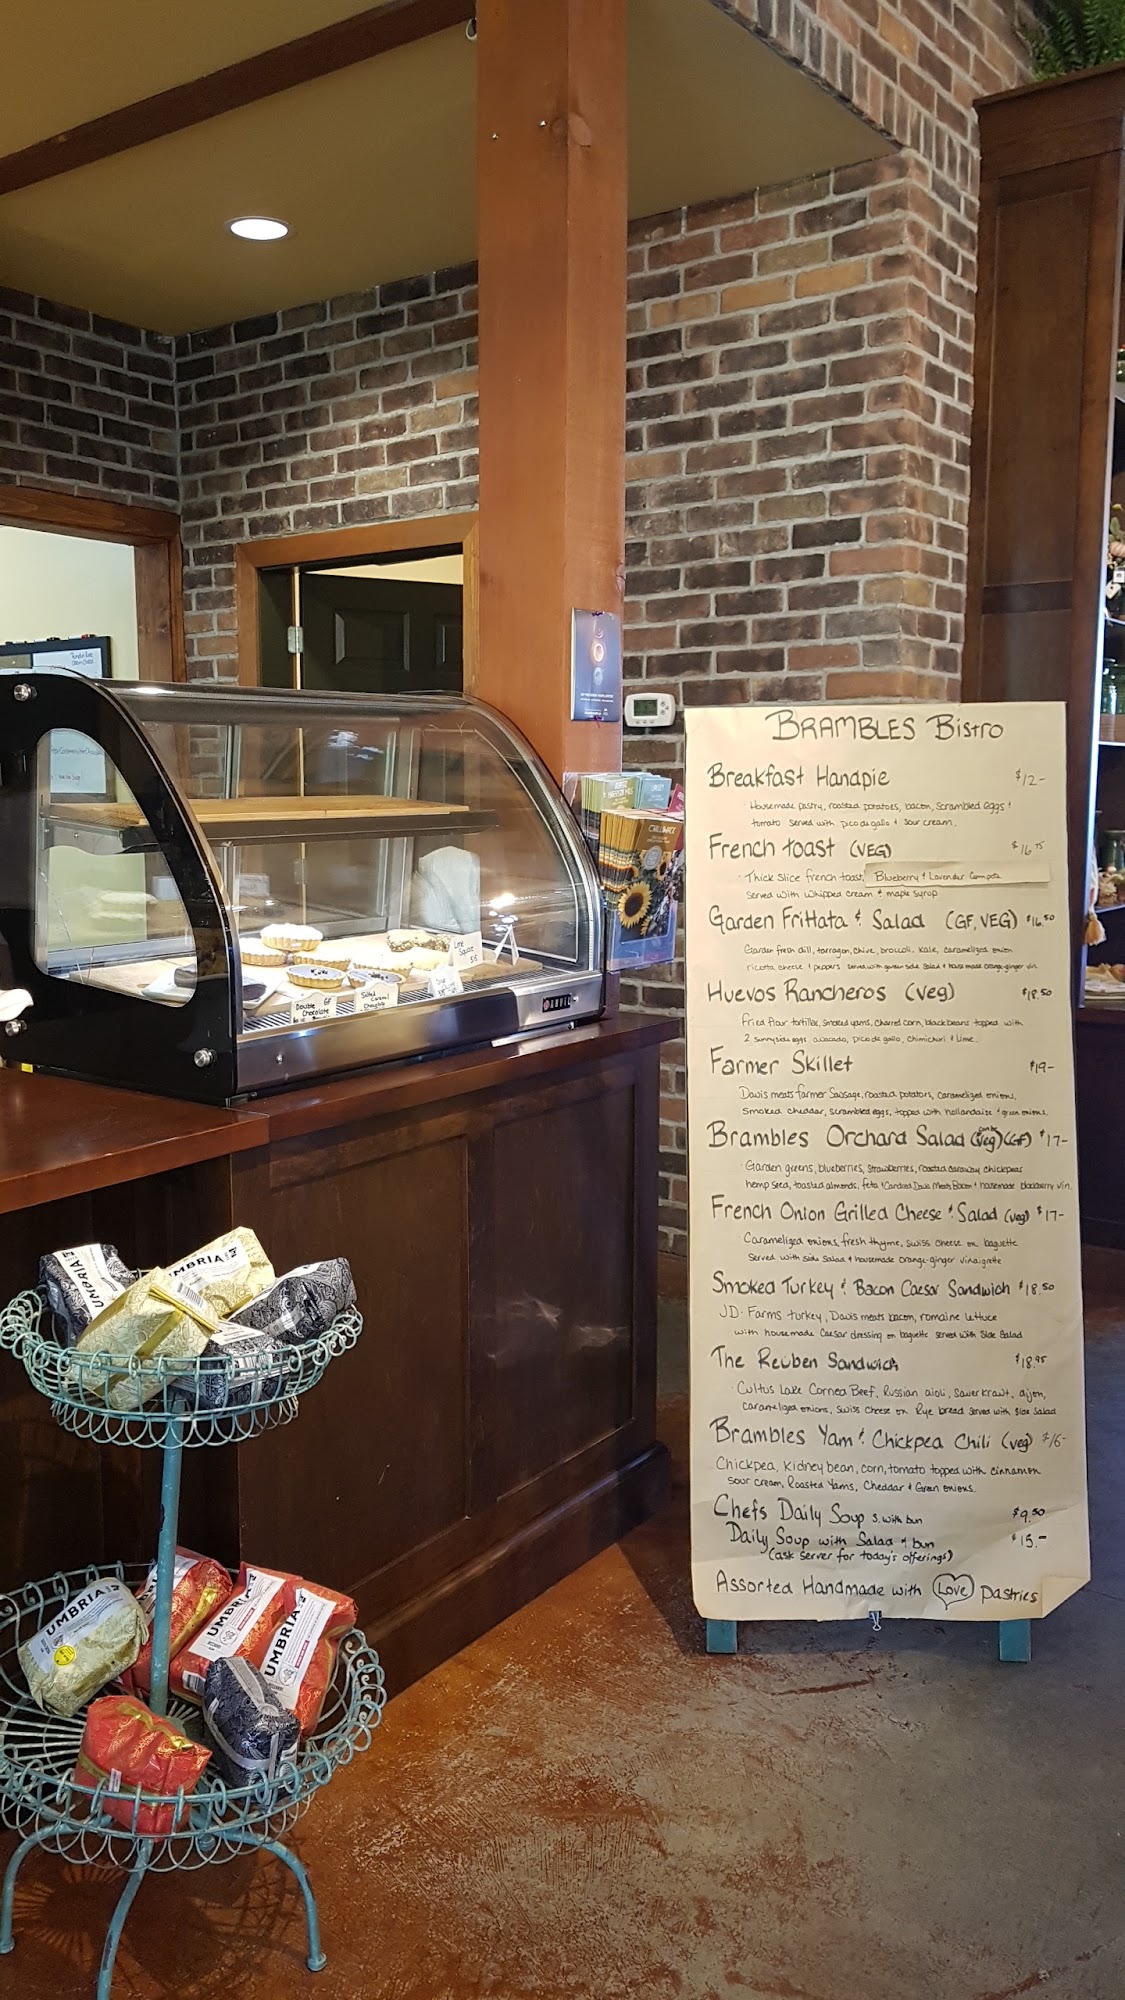 BRAMBLES BISTRO
Breakfast Handpie $12-
Housemade pastry, roasted potatoes, bacon, scrambled eggs &
tomato served with pico de gallo & sour cream.
French toast (VEG) $16.75
Thick slice french toast, Blueberry & Lavender Compote
served with whipped cream & maple syrup
Garden Frittata & Salad (GF, VEG) $16.50
Garden fresh dill, tarragon, chive, broccoli, kale, caramelized onion
ricotta cheese & peppers served with garden side salad & housemade orange-ginger vin.
Huevos Rancheros (veg) $18.50
Fried flour tortillas, smoked yams, charred corn, black beans topped with
2 sunnyside eggs avocado, pico de gallo, chimichuri & lime.
Farmer Skillet $19-
Davis meats farmer Sausage, roasted potatoes, caramelized onions,
Smoked cheddar, scrambled eggs, topped with hollandaise & green onions.
Brambles Orchard Salad (can be veg) (GF) $17-
Garden greens, blueberries, strawberries, roasted caraway chickpeas
hemp seed, toasted almonds, feta & Candied Davis Meats Bacon & housemade blackberry vin.
French Onion Grilled Cheese & Salad (veg) $17-
Caramelized onions, fresh thyme, swiss cheese on baguette
Served with side salad & housemade orange-ginger vinaigrette
Smoked Turkey & Bacon Caesar Sandwich $18.50
JD Farms turkey, Davis meats bacon, romaine lettuce
with housemade Caesar dressing on baguette served with side Salad
The Reuben Sandwich $18.95
Cultus Lake Corned Beef, Russian aioli, sauerkraut, dijon,
caramelized onions, Swiss cheese on Rye bread served with side salad
Brambles Yam & Chickpea Chili (veg) $16-
Chickpea, kidney bean, corn, tomato topped with cinnamon
sour cream, Roasted Yams, Cheddar & Green onions.
Chefs Daily Soup s. with bun $9.50
Daily Soup with Salad & bun $15.-
(ask server for today's offerings)
Assorted Handmade with Love pastries
Double GF
Chocolate
Salted Caramel
Chocolate
Lime
Square
$5
ANVIL
CHILLIWACK
UMBRIA
UMBRIA
UMBRIA
UMBRIA
UMBRIA